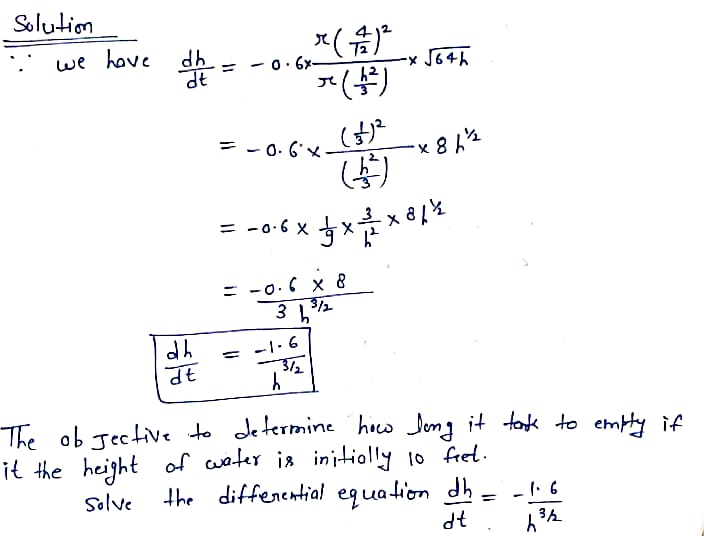 Solution
∵ we have dh/dt = -0.6× π(4/12)² / π(h²/3) × √64h
= -0.6 × (1/3)² / (h²/3) × 8 h^1/2
= -0.6 × 1/9 × 3/h² × 8 h^1/2
= -0.6 × 8 / 3 h^3/2
dh/dt = -1.6 / h^3/2
The objective to determine how long it tank to empty if
it the height of water is initially 10 feet.
Solve the differential equation dh/dt = -1.6 / h^3/2